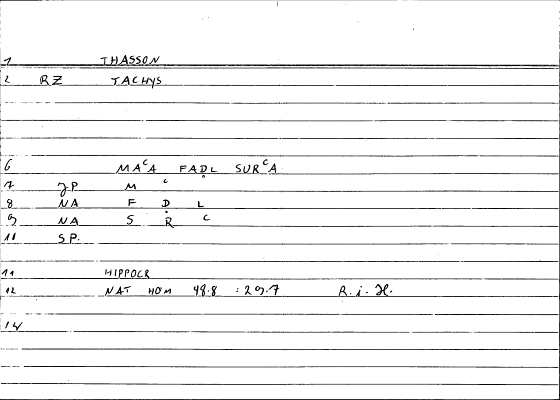 1 THASSON
2 RZ TACHYS
6 MAᶜA FAḌL SURᶜA
7 JP M ᶜ
8 NA F Ḍ L
9 NA S R ᶜ
10 SP.
11 HIPPOCR
12 NAT HOM 48.8 : 29.7 R. i. H.
14